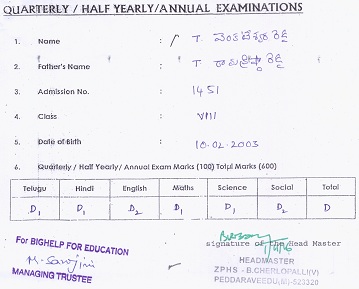 QUARTERLY / HALF YEARLY/ANNUAL EXAMINATIONS
1. Name : T. వెంకటేశ్వర రెడ్డి
2. Father's Name : T. రామకృష్ణా రెడ్డి
3. Admission No. : 1451
4. Class : VIII
5. Date of Birth : 10.02.2003
6. Quarterly / Half Yearly/ Annual Exam Marks (100) Total Marks (600)
Telugu Hindi English Maths Science Social Total
D1 D1 D2 D1 D1 D2 D
For BIGHELP FOR EDUCATION
M. Sarojini
MANAGING TRUSTEE
signature of the Head Master
HEADMASTER
ZPHS - B.CHERLOPALLI(V)
PEDDARAVEEDU(M)-523320